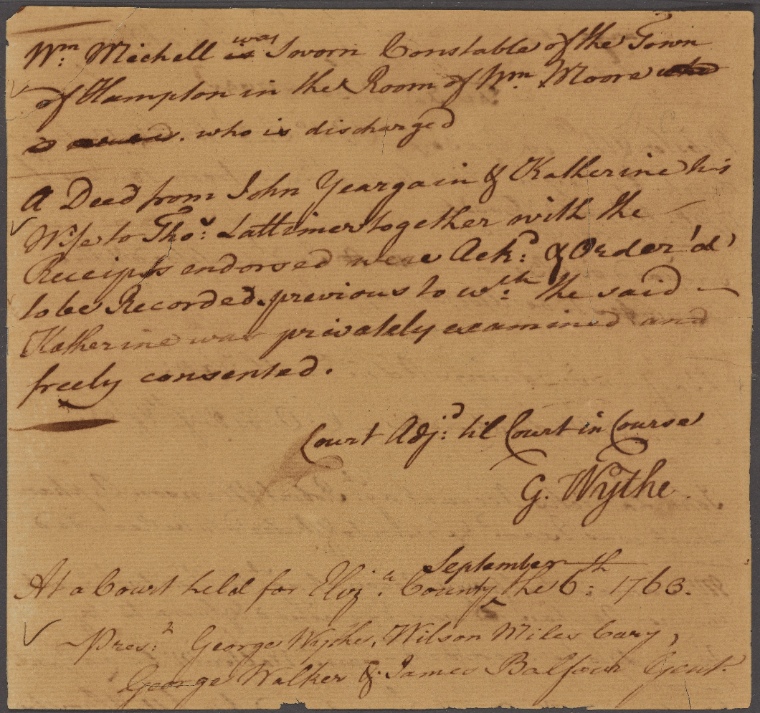 Wm: Mechell is was Sworn Constable of the Town
of Hampton in the Room of Wm Moore who
who is discharged
A Deed from John Yeargain & Katherine his
Wife to Thos: Lattimer together with the
Receipts endorsed were Ackd: & Order'd
to be Recorded previous to wth: the said
Katherine was privately examined and
freely consented.
Court Adjd: til Court in Course
G. Wythe
September
At a Court held for Eliza: County the 6th: 1763.
Prest: George Wythe, Wilson Miles Cary,
George Walker & James Balfour Gent.